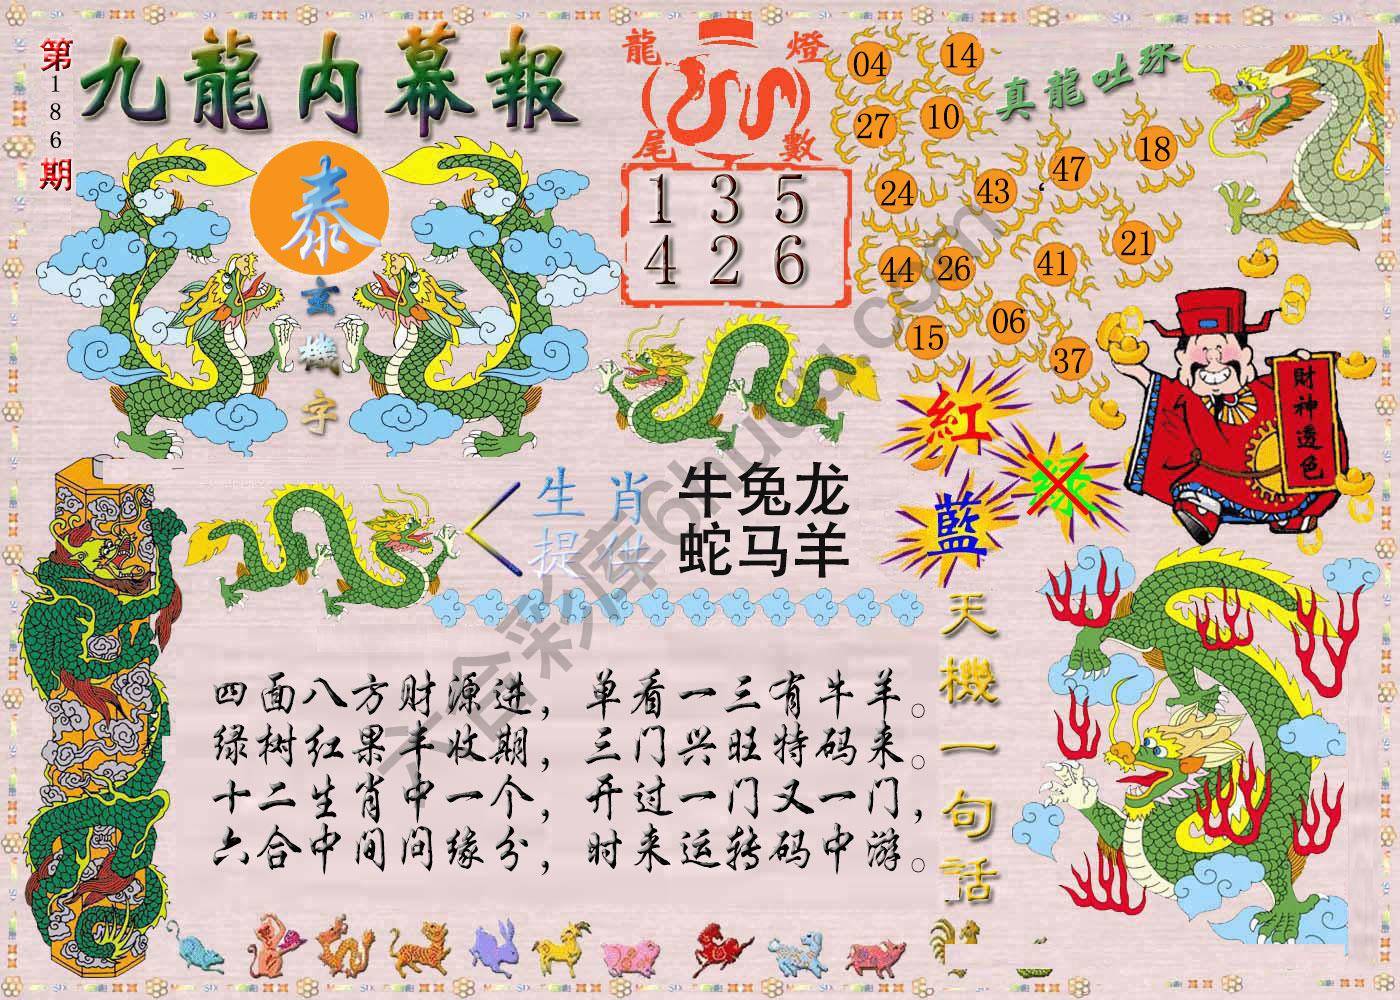 第186期
九龍内幕報
泰
玄機字
龍燈尾數
1 3 5
4 2 6
真龍吐珠
04 14
27 10
47 18
24 43
21
44 26 41
15 06
37
財神透色
紅
绿
藍
生肖提供
牛兔龙
蛇马羊
天機一句話
四面八方财源进，单看一三有牛羊。
绿树红果丰收期，三门兴旺特码来。
十二生肖中一个，开过一门又一门，
六合中间问缘分，时来运转码中游。
六合彩库6huu.com